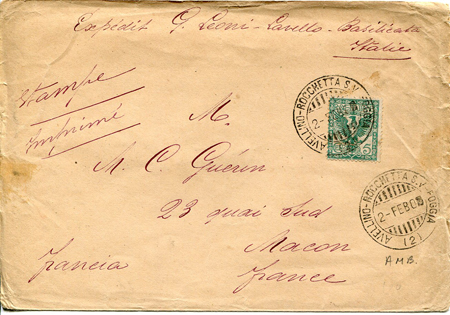 Expédit G. Leoni - Lavello - Basilicata
Italie
Stampe
Imprimé
M.
M. C. Guérin
23 quai Sud
Macon
France
Francia
AVELLINO-ROCCHETTA S.V. FOGGIA
2-FEB
5
AVELLINO-ROCCHETTA S.V. FOGGIA
2-FEB 0
(2)
AMB.